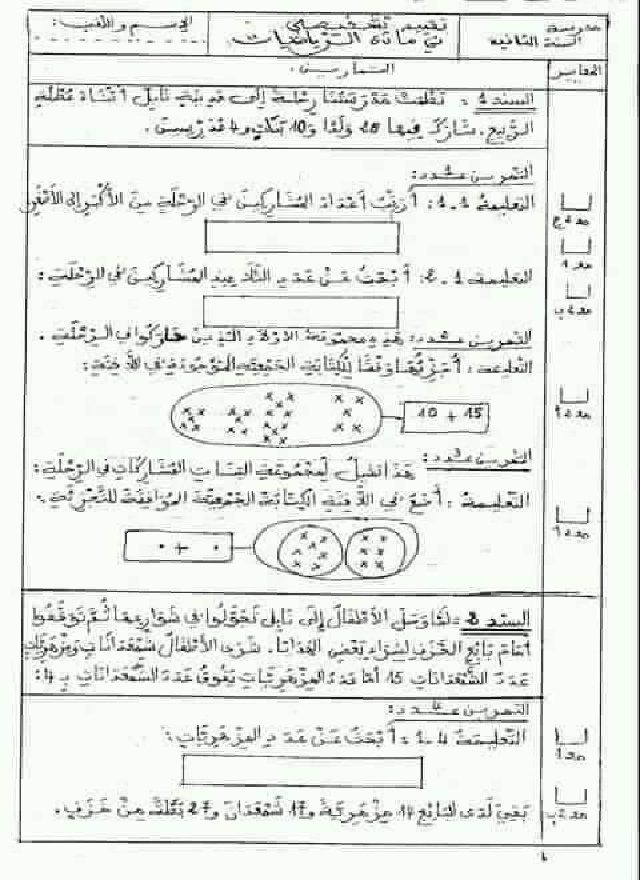 مدرسة
السنة الثانية
تقييم تشخيصي
في مادة الرياضيات
الإسم و اللقب:
المعايير
التمارين
السند 1: نظمت مدرستنا رحلة إلى مدينة نابل أثناء عطلة
الربيع. شارك فيها 25 ولدا و 10 بنات و 4 مدرسين.
التمرين عـدد:
التعليمة 1.1: أرتب أعداد المشاركين في الرحلة من الأكبر إلى الأصغر
التعليمة 2.1: أبحث عن عدد التلاميذ المشاركين في الرحلة:
التمرين عـدد: هذه مجموعة الأولاد الذين شاركوا في الرحلة.
التعليمة: أجزئها وفقا للكتابة الجمعية الموجودة في اللافتة:
10 + 15
التمرين عـدد:
هذا تمثيل لمجموعة البنات المشاركات في الرحلة:
التعليمة: أضع في اللافتة الكتابة الجمعية الموافقة للتجزئة.
. + .
السند 2: لما وصل الأطفال إلى نابل تجولوا في شوارعها ثم توقفوا
أمام بائع الخزف لشراء بعض الهدايا. شرى الأطفال شمعدانات ومزهريات
عدد الشمعدانات 15 أما عدد المزهريات يفوق عدد الشمعدانات بـ 4:
التمرين عـدد:
التعليمة 1.4: أبحث عن عدد المزهريات:
بقي لدى البائع 14 مزهرية و 17 شمعدان و 27 قطة من خزف.